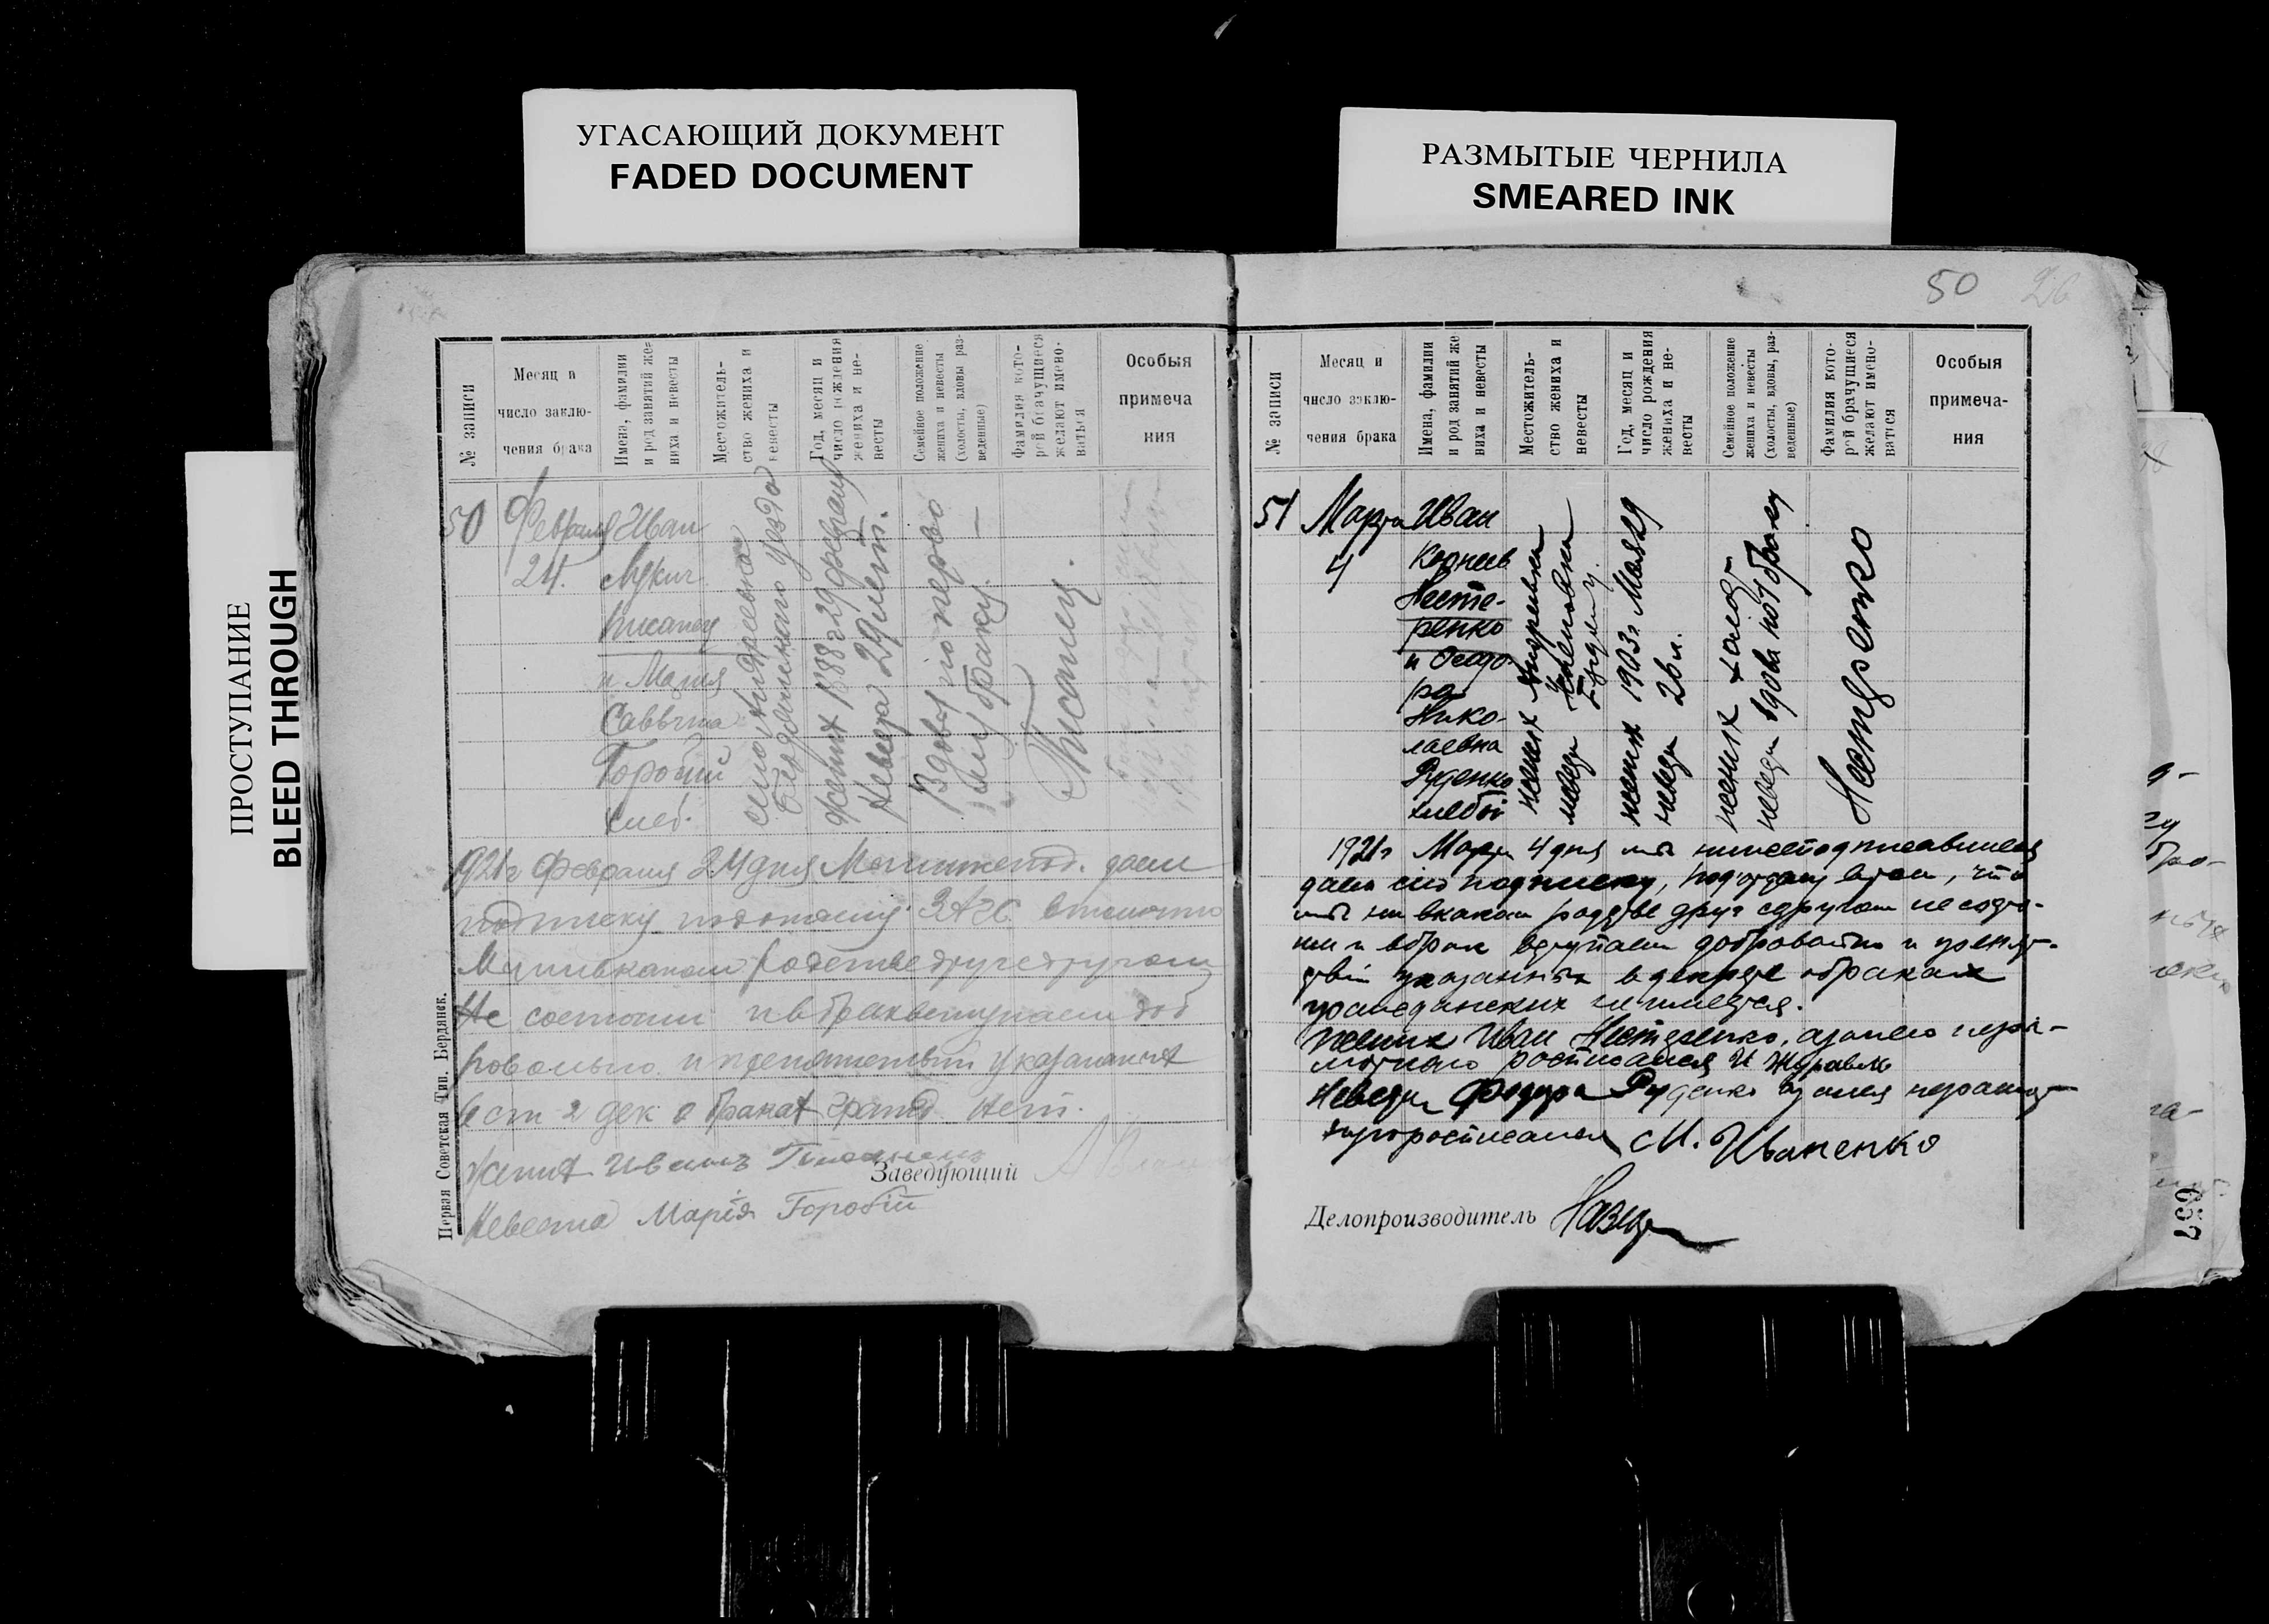 УГАСАЮЩИЙ ДОКУМЕНТ
FADED DOCUMENT
РАЗМЫТЫЕ ЧЕРНИЛА
SMEARED INK
ПРОСТУПАНИЕ
BLEED THROUGH
№ записи
Месяц и
число заклю-
чения брака
Имена, фамилии
и род занятий же-
ниха и невесты
Местожитель-
ство жениха и
невесты
Год, месяц и
число рождения
жениха и не-
весты
Семейное положение
жениха и невесты
(холосты, вдовы, раз-
веденные)
Фамилия кото-
рой брачущиеся
желают имено-
ваться
Особыя
примеча
ния
50
Февраля
24.
Иван
Лукич
Писанец
и Мария
Саввична
Горобий
хлеб.
село Андреевка
Бердянского уезда
Жених 1888 г 29 февраля
Невеста 29 лет.
Вдовы по перво
му браку.
Писанец.
1921 г Февраля 24 дня Мы нижепод. даем
подписку
Мы ни в каком родстве друг с другом
Не состоим и в брак вступаем доб
ровольно и препятствий указанных
в ст 2 дек о браках гражд. нет.
Жених Иванъ
Невеста Марія Горобій
Заведующий
Первая Советская Тип. Бердянск.
50
26
№ записи
Месяц и
число заклю-
чения брака
Имена, фамилии
и род занятий же
ниха и невесты
Местожитель-
ство жениха и
невесты
Год, месяц и
число рождения
жениха и не-
весты
Семейное положение
жениха и невесты
(холосты, вдовы, раз-
веденные)
Фамилия кото-
рой брачущиеся
желают имено-
ваться
Особыя
примеча-
ния
51
Марта
4
Иван
Корнеев
Несте-
ренко
и Феодо-
ра
Нико-
лаевна
Руденко
хлебоб
жених Андреевка
невеста
жених 1903 г Мая 29
невеста 26 л.
жених холост
невеста вдова по 1 браку
Нестеренко
1921 г Марта 4 дня мы нижеподписавшиеся
даем сию подписку, в том, что
мы ни в каком родстве друг с другом не состо-
им и в брак вступаем добровольно и препят-
ствий указанных в декрете о браках
гражданских не имеется.
Жених Иван Нестеренко, а за него негра-
мотного росписался И Журавль
Невеста Феодора Руденко а за нея неграмот-
ную росписался М. Иваненко
Делопроизводитель
637